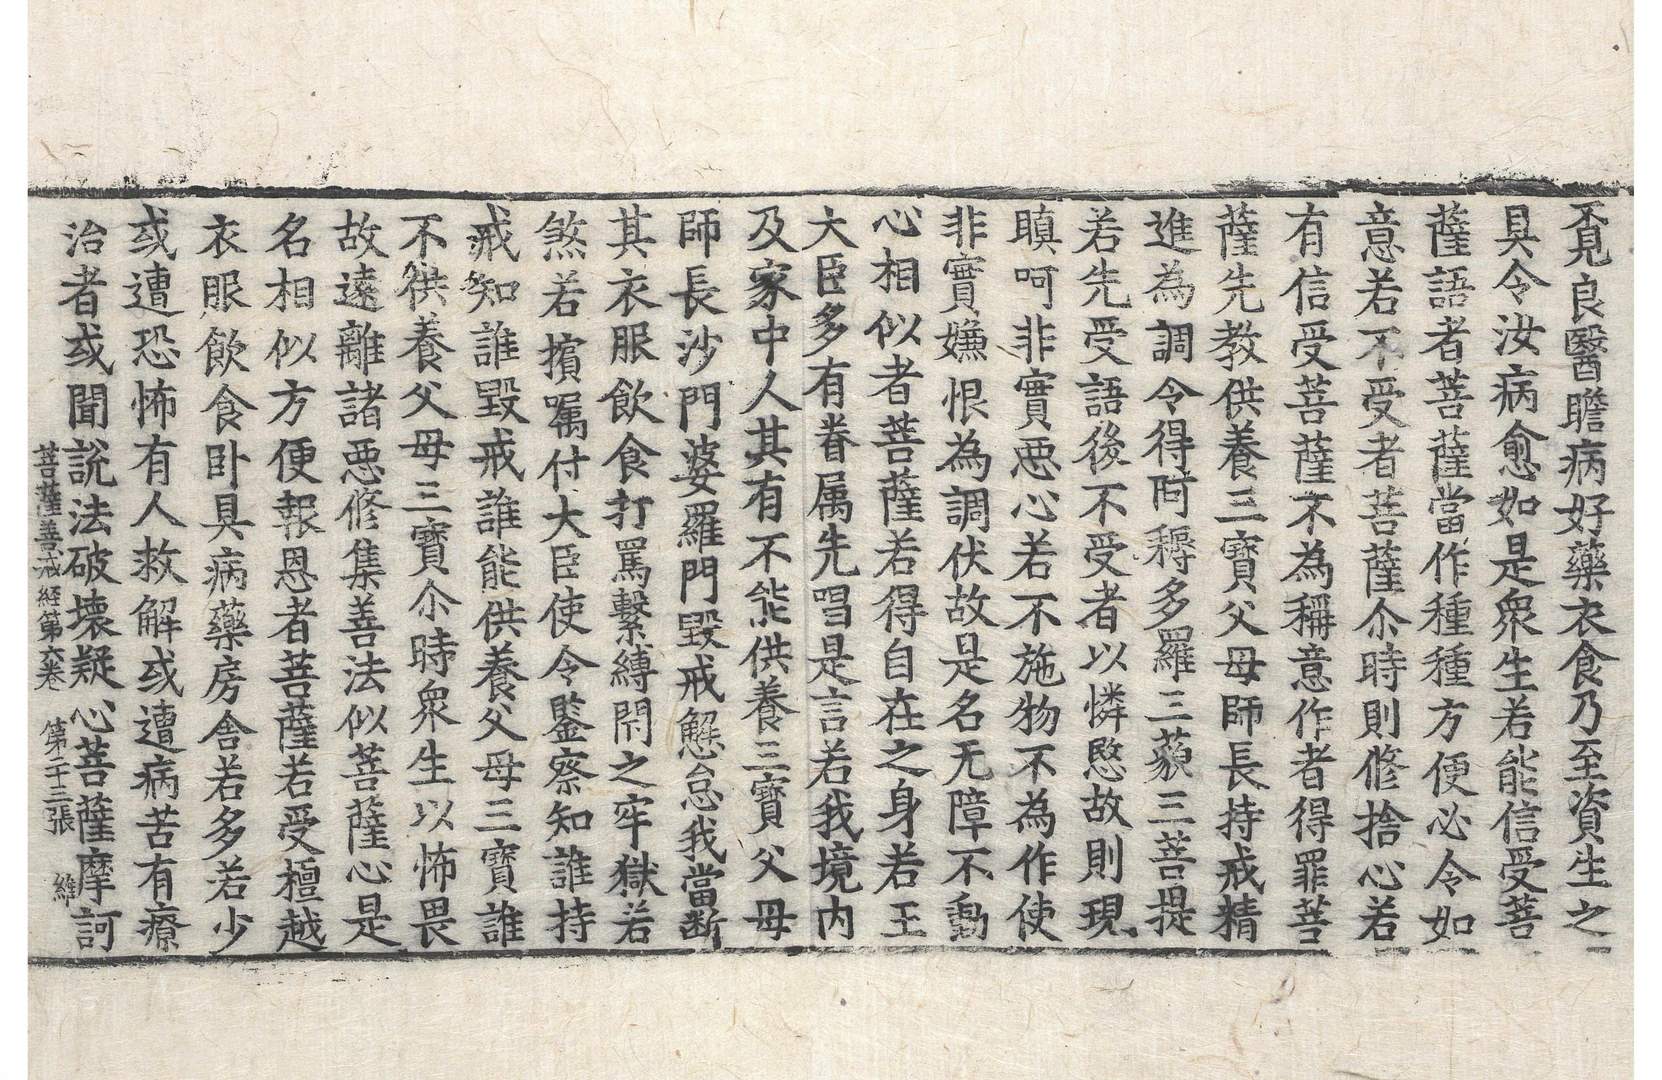 不見良醫瞻病好藥衣食乃至資生之
具令汝病愈如是衆生若能信受菩
薩語者菩薩當作種種方便必令如
意若不受者菩薩尒時則俢捨心若
有信受菩薩不為稱意作者得罪菩
薩先教供養三寶父母師長持戒精
進為調令得阿耨多羅三藐三菩提
若先受語後不受者以憐愍故則現
瞋呵非實惡心若不施物不為作使
非實嫌恨為調伏故是名无障不動
心相似者菩薩若得自在之身若王
大臣多有眷属先唱是言若我境内
及家中人其有不能供養三寶父母
師長沙門婆羅門毀戒懈怠我當断
其衣服飲食打罵繫縛閇之牢獄若
煞若擯嘱付大臣使令鑒察知誰持
戒知誰毀戒誰能供養父母三寶誰
不供養父母三寶尒時衆生以怖畏
故遠離諸惡俢集善法似菩薩心是
名相似方便報恩者菩薩若受檀越
衣服飲食卧具病藥房舍若多若少
或遭恐怖有人救解或遭病苦有療
治者或聞說法破壞疑心菩薩摩訶
菩薩善戒経第六卷　第二十三張　維